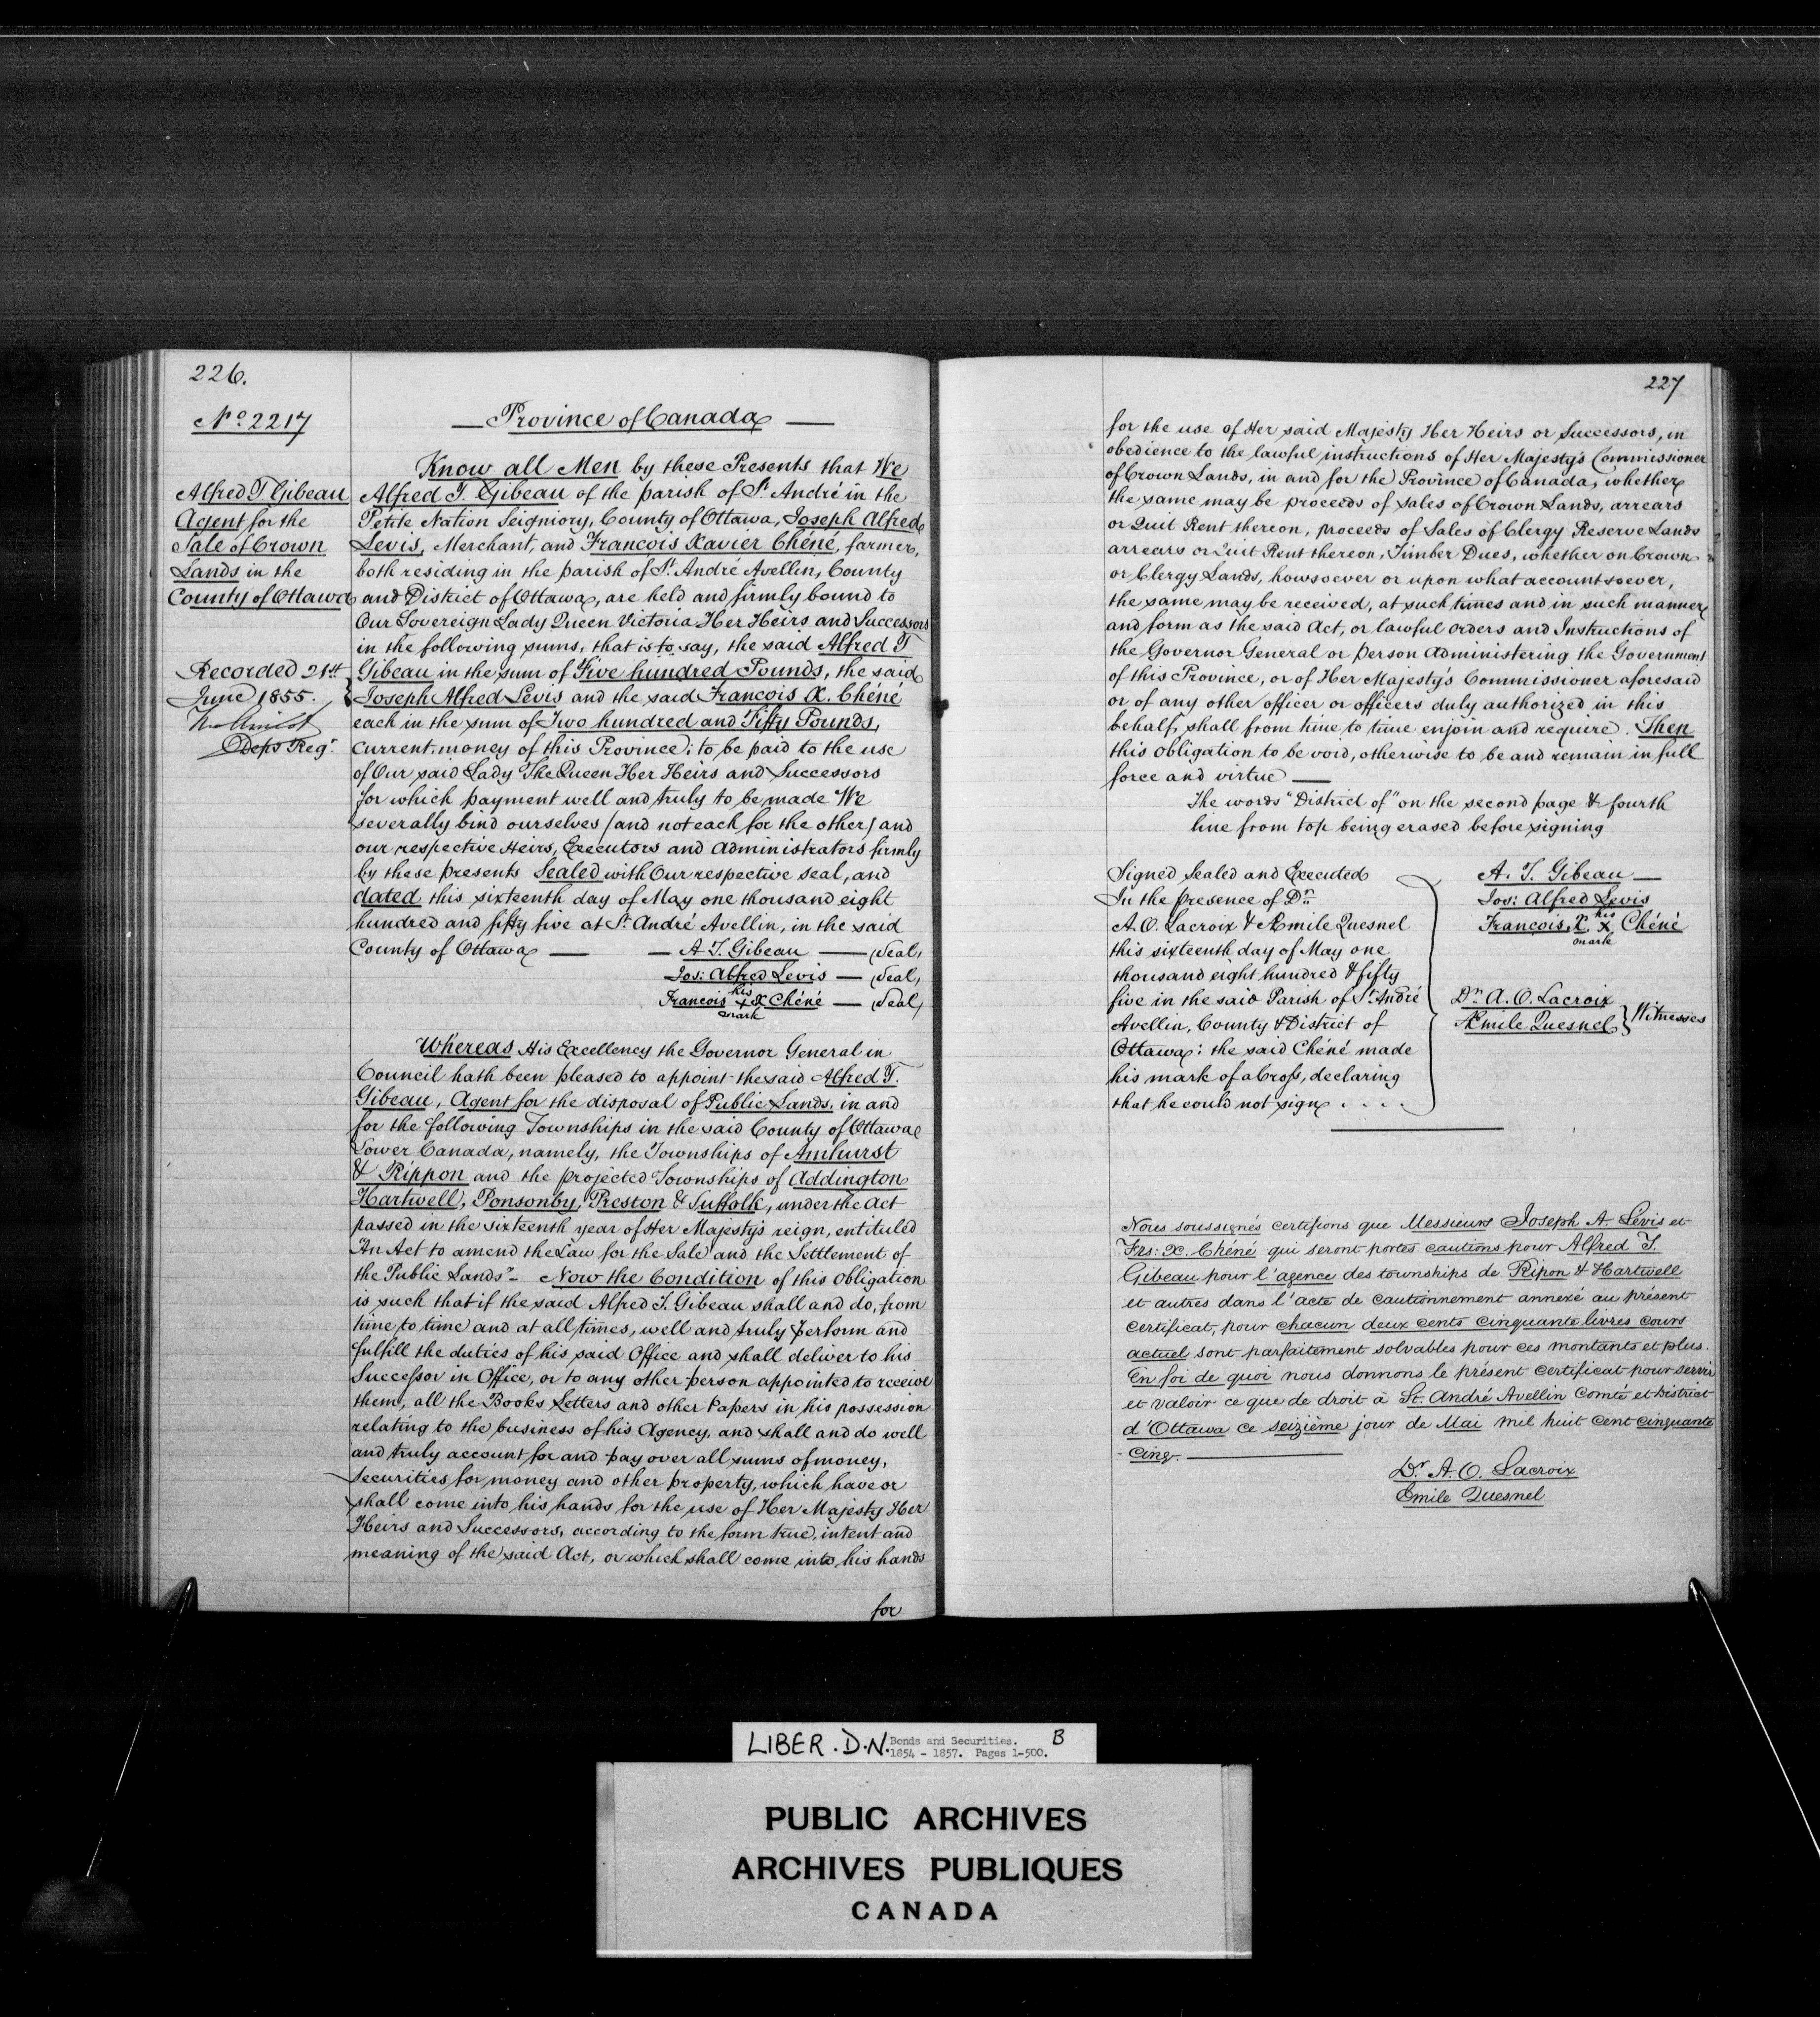 226.
No 2217
Province of Canada
Know all Men by these Presents that We
Alfred T. Gibeau of the parish of St André in the
Petite Nation Seigniory, County of Ottawa, Joseph Alfred
Levis, Merchant, and Francois Xavier Chéné, farmer,
both residing in the parish of St André Avellin, County
and District of Ottawa, are held and firmly bound to
Our Sovereign Lady Queen Victoria Her Heirs and Successors
in the following sums, that is to say, the said Alfred T
Gibeau in the sum of Five hundred Pounds, the said
Joseph Alfred Levis and the said Francois X. Chéné
each in the sum of Two hundred and Fifty Pounds,
current money of this Province; to be paid to the use
of Our said Lady The Queen Her Heirs and Successors
for which payment well and truly to be made We
severally bind ourselves (and not each for the other) and
our respective Heirs, Executors and Administrators firmly
by these presents Sealed with Our respective seal, and
dated this sixteenth day of May one thousand eight
hundred and fifty five at St André Avellin, in the said
County of Ottawa — A T. Gibeau — (Seal)
Jos: Alfred Levis — (Seal)
Francois his + mark X Chéné — (Seal)
Whereas His Excellency the Governor General in
Council hath been pleased to appoint the said Alfred T.
Gibeau, Agent for the disposal of Public Lands, in and
for the following Townships in the said County of Ottawa
Lower Canada, namely, the Townships of Amhurst
& Rippon and the projected Townships of Addington
Hartwell, Ponsonby, Preston & Suffolk, under the Act
passed in the sixteenth year of Her Majesty's reign, entituled
"An Act to amend the Law for the Sale and the Settlement of
the Public Lands" — Now the Condition of this Obligation
is such that if the said Alfred T. Gibeau shall and do, from
time to time and at all times, well and truly perform and
fulfill the duties of his said Office and shall deliver to his
Successor in Office, or to any other person appointed to receive
them, all the Books Letters and other Papers in his possession
relating to the business of his Agency, and shall and do well
and truly account for and pay over all sums of money,
securities for money and other property, which have or
shall come into his hands for the use of Her Majesty Her
Heirs and Successors, according to the form true, intent and
meaning of the said Act, or which shall come into his hands
for
Alfred T. Gibeau
Agent for the
Sale of Crown
Lands in the
County of Ottawa
Recorded 21st
June 1855.
Depy Regr
227
for the use of Her said Majesty Her Heirs or Successors, in
obedience to the lawful instructions of Her Majesty's Commissioner
of Crown Lands, in and for the Province of Canada, whether
the same may be proceeds of sales of Crown Lands, arrears
or Quit Rent thereon, proceeds of Sales of Clergy Reserve Lands
arrears or Quit Rent thereon, Timber Dues, whether on Crown
or Clergy Lands, howsoever or upon what account soever,
the same may be received, at such times and in such manner
and form as the said Act, or lawful orders and Instructions of
the Governor General or person Administering the Government
of this Province, or of Her Majesty's Commissioner aforesaid
or of any other officer or officers duly authorized in this
behalf, shall from time to time enjoin and require. Then
this obligation to be void, otherwise to be and remain in full
force and virtue —
The words "District of" on the second page & fourth
line from top being erased before signing
Signed Sealed and Executed
In the presence of Dr
A. O. Lacroix & Emile Quesnel
this sixteenth day of May one
thousand eight hundred & fifty
five in the said Parish of St André
Avellin, County & District of
Ottawa; the said Chéné made
his mark of a Cross, declaring
that he could not sign . . . .
A. T. Gibeau —
Jos: Alfred Levis
Francois X. his x mark Chéné
Dr A. O. Lacroix
Emile Quesnel } Witnesses
Nous soussignés certifions que Messieurs Joseph A. Lévis et
Frs: X. Chéné qui seront portés cautions pour Alfred T.
Gibeau pour l'agence des townships de Ripon & Hartwell
et autres dans l'acte de cautionnement annexé au présent
certificat, pour chacun deux cents cinquante livres cours
actuel sont parfaitement solvables pour ces montants et plus.
En foi de quoi nous donnons le présent certificat pour servir
et valoir ce que de droit à St. André Avellin Comté et District
d'Ottawa ce seizième jour de Mai mil huit cent cinquante
- cinq.
Dr A. O. Lacroix
Emile Quesnel
LIBER . D . N. Bonds and Securities. B
1854 - 1857. Pages 1-500.
PUBLIC ARCHIVES
ARCHIVES PUBLIQUES
CANADA